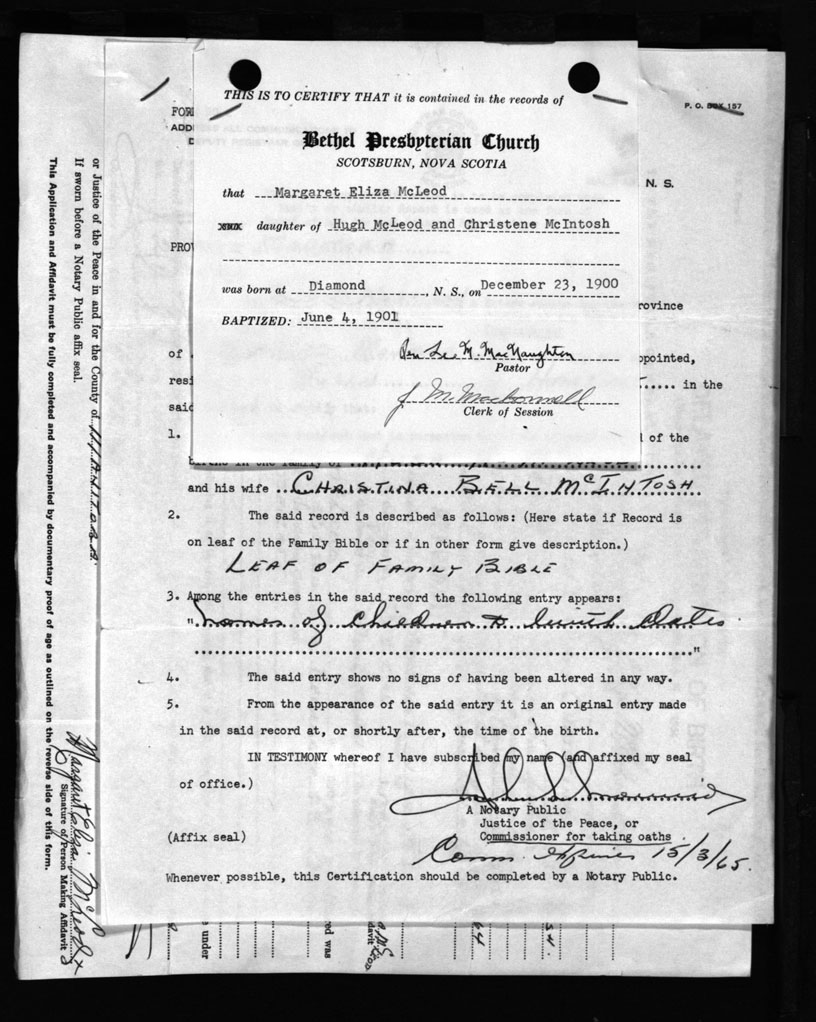 THIS IS TO CERTIFY THAT it is contained in the records of
Bethel Presbyterian Church
SCOTSBURN, NOVA SCOTIA
that Margaret Eliza McLeod
daughter of Hugh McLeod and Christene McIntosh
was born at Diamond, N. S., on December 23, 1900
BAPTIZED: June 4, 1901
M. MacNaughton
Pastor
J. M. MacDonnell
Clerk of Session
P. O. BOX 157
N. S.
FOR
ADD
PROV
rovince
of
ppointed,
resi
in the
said
1. d of the
births in the family of
and his wife CHRISTINA BELL McINTOSH
2. The said record is described as follows: (Here state if Record is
on leaf of the Family Bible or if in other form give description.)
LEAF OF FAMILY BIBLE
3. Among the entries in the said record the following entry appears:
"names of children & birth Dates
"
4. The said entry shows no signs of having been altered in any way.
5. From the appearance of the said entry it is an original entry made
in the said record at, or shortly after, the time of the birth.
IN TESTIMONY whereof I have subscribed my name (and affixed my seal
of office.)
A Notary Public
Justice of the Peace, or
Commissioner for taking oaths
(Affix seal)
Comm. Expires 15/3/65.
Whenever possible, this Certification should be completed by a Notary Public.
or Justice of the Peace in and for the County of
If sworn before a Notary Public affix seal.
This Application and Affidavit must be fully completed and accompanied by documentary proof of age as outlined on the reverse side of this form.
Margaret Eliza McLeod x
Signature of Person Making Affidavit
e under
od was
64